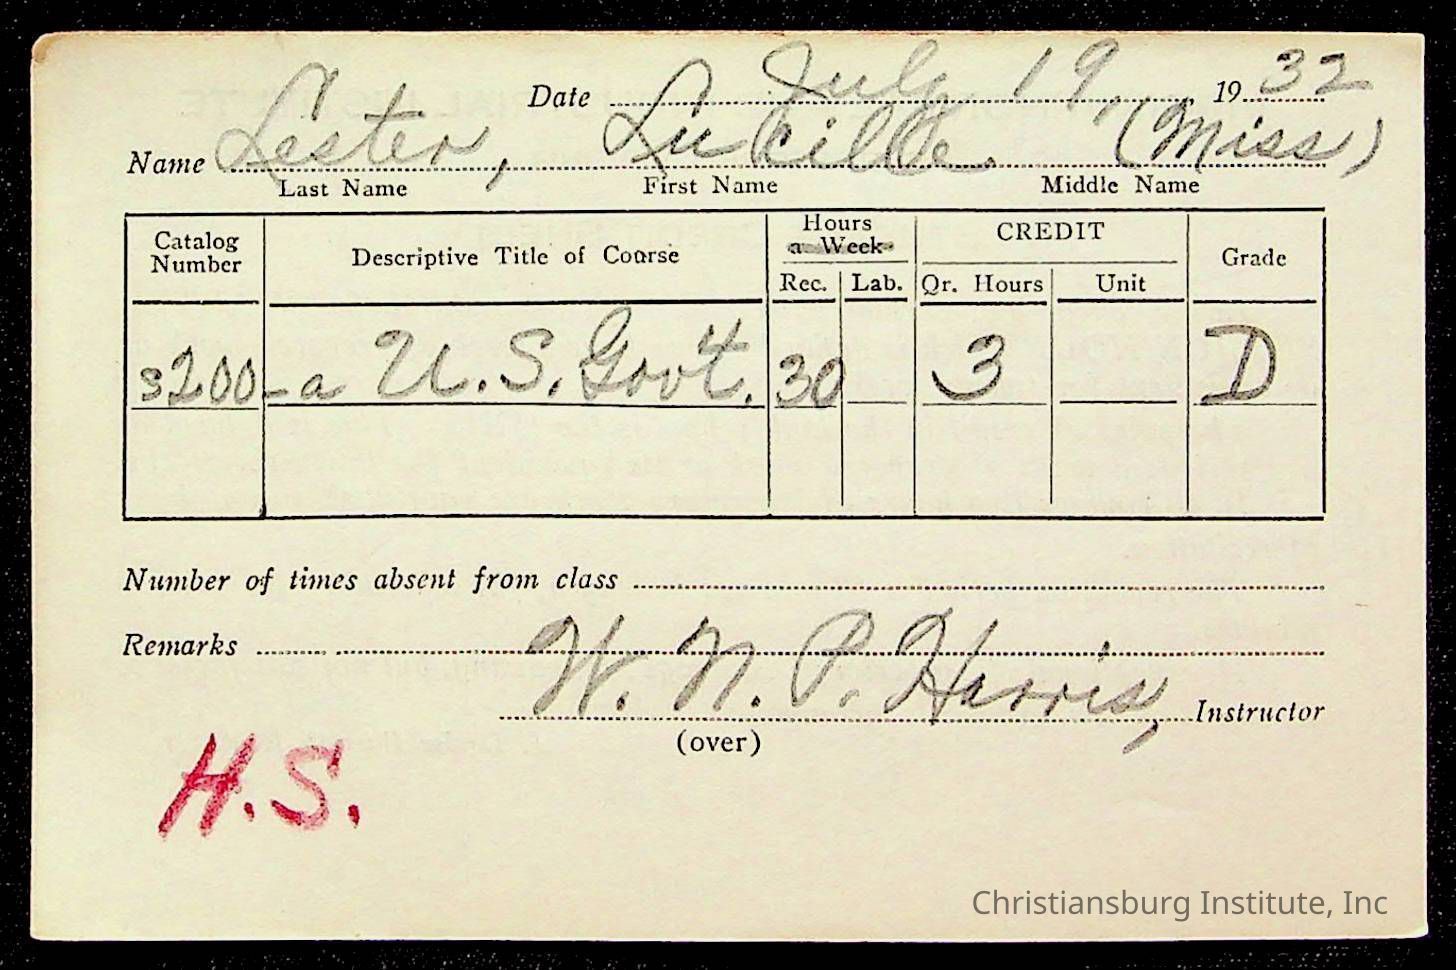 Date July 19, 1932
Name Lester, Lucille. (Miss)
Last Name First Name Middle Name
Catalog Number Descriptive Title of Course Hours a Week CREDIT Grade
Rec. Lab. Qr. Hours Unit
s200-a U.S. Govt. 30 3 D
Number of times absent from class
Remarks
W. N. P. Harris, Instructor
(over)
H.S.
Christiansburg Institute, Inc